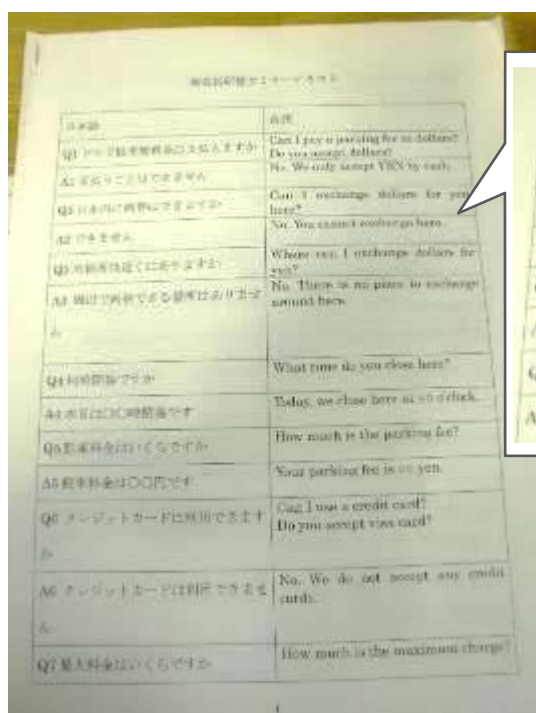 日本語
英語
Q1 ドルで駐車場料金は支払えますか
Can I pay a parking fee in dollars?
Do you accept dollars?
A1 支払うことはできません
No. We only accept YEN by cash.
Q2 日本円に両替はできますか
Can I exchange dollars for yen
here?
A2 できません
No. You cannot exchange here.
Q3 両替所は近くにありますか
Where can I exchange dollars for
yen?
A3 周辺で両替できる場所はありませ
ん
No. There is no place to exchange
around here.
Q4 何時閉場ですか
What time do you close here?
A4 本日は○○時閉場です
Today, we close here at ○○ o'clock.
Q5 駐車料金はいくらですか
How much is the parking fee?
A5 駐車料金は○○円です
Your parking fee is ○○ yen.
Q6 クレジットカードは利用できます
か
Can I use a credit card?
Do you accept visa card?
A6 クレジットカードは利用できませ
ん
No. We do not accept any credit
cards.
Q7 最大料金はいくらですか
How much is the maximum charge?
1
Q
A